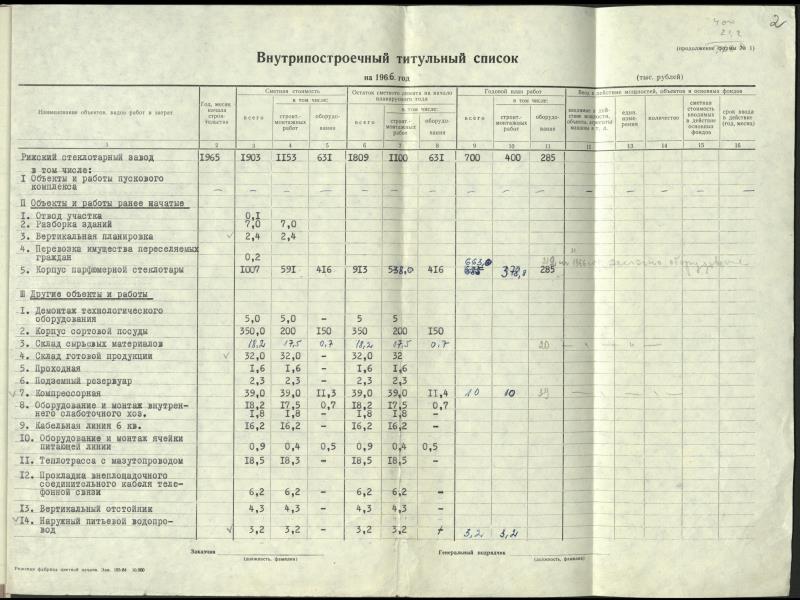 2
400
(продолжение формы № 1)
Внутрипостроечный титульный список
на 1966 год
(тыс. рублей)
Наименование объектов, видов работ и затрат
Год, месяц начала строительства
Сметная стоимость
Остаток сметного лимита на начало планируемого года
Годовой план работ
Ввод в действие мощностей, объектов и основных фондов
всего
в том числе:
строит.-монтажных работ
оборудования
всего
в том числе:
строит.-монтажных работ
оборудования
всего
в том числе:
строит.-монтажных работ
оборудования
един. измерения
количество
сметная стоимость вводимых в действие основных фондов
срок ввода в действие (год, месяц)
1 2 3 4 5 6 7 8 9 10 11 12 13 14 15 16
Рижский стеклотарный завод I965 I903 II53 63I I809 II00 63I 700 400 285
в том числе:
I Объекты и работы пускового
комплекса – – – – – – – – – – – – – – –
II Объекты и работы ранее начатые
I. Отвод участка 0,I
2. Разборка зданий 7,0 7,0
3. Вертикальная планировка 2,4 2,4
4. Перевозка имущества переселяемых
граждан 0,2
5. Корпус парфюмерной стеклотары I007 59I 4I6 9I3 538,0 4I6 663,0 378,8 285
III Другие объекты и работы
I. Демонтаж технологического
оборудования 5,0 5,0 – 5 5
2. Корпус сортовой посуды 350,0 200 I50 350 200 I50
3. Склад сырьевых материалов 18,2 17,5 0,7 18,2 17,5 0,7 20
4. Склад готовой продукции 32,0 32,0 – 32,0 32
5. Проходная I,6 I,6 – I,6 I,6
6. Подземный резервуар 2,3 2,3 – 2,3 2,3
7. Компрессорная 39,0 39,0 II,3 39,0 39,0 II,4 10 10 39
8. Оборудование и монтаж внутрен- I8,2 I7,5 0,7 I8,2 I7,5 0,7
него слаботочного хоз. I,8 I,8 – I,8 I,8 –
9. Кабельная линия 6 кв. I6,2 I6,2 – I6,2 I6,2 –
I0. Оборудование и монтаж ячейки
питающей линии 0,9 0,4 0,5 0,9 0,4 0,5
II. Теплотрасса с мазутопроводом I8,5 I8,3 – I8,5 I8,5 –
I2. Прокладка внеплощадочного
соединительного кабеля теле-
фонной связи 6,2 6,2 – 6,2 6,2 –
I3. Вертикальный отстойник 4,3 4,3 – 4,3 4,3 –
I4. Наружный питьевой водопро-
вод 3,2 3,2 – 3,2 3,2 3,2 3,2
Заказчик
(должность, фамилия)
Генеральный подрядчик
(должность, фамилия)